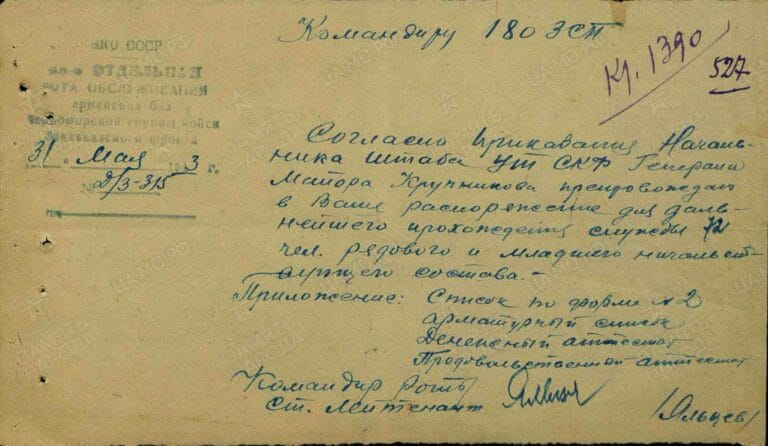 Командиру 180 ЗСП
Кр. 1390
527
НКО СССР
ОТДЕЛЬНАЯ
РОТА ОБСЛУЖИВАНИЯ
армейских баз
Черноморской группы войск
Закавказского фронта
31 Мая 1943 г.
№ Д/3-315
Согласно Приказания Началь-
ника Штаба УТ СКФ Генерала
Майора Крупникова препровождаю
в Ваше распоряжение для даль-
нейшего прохождения службы 72
чел. рядового и младшего начальст-
вующего состава.-
Приложение: Список по форме №2
арматурный список
Денежный аттестат
Продовольственный аттестат
Командир Роты
Ст. Лейтенант
/Яльцев/
ЦАМО.РФ